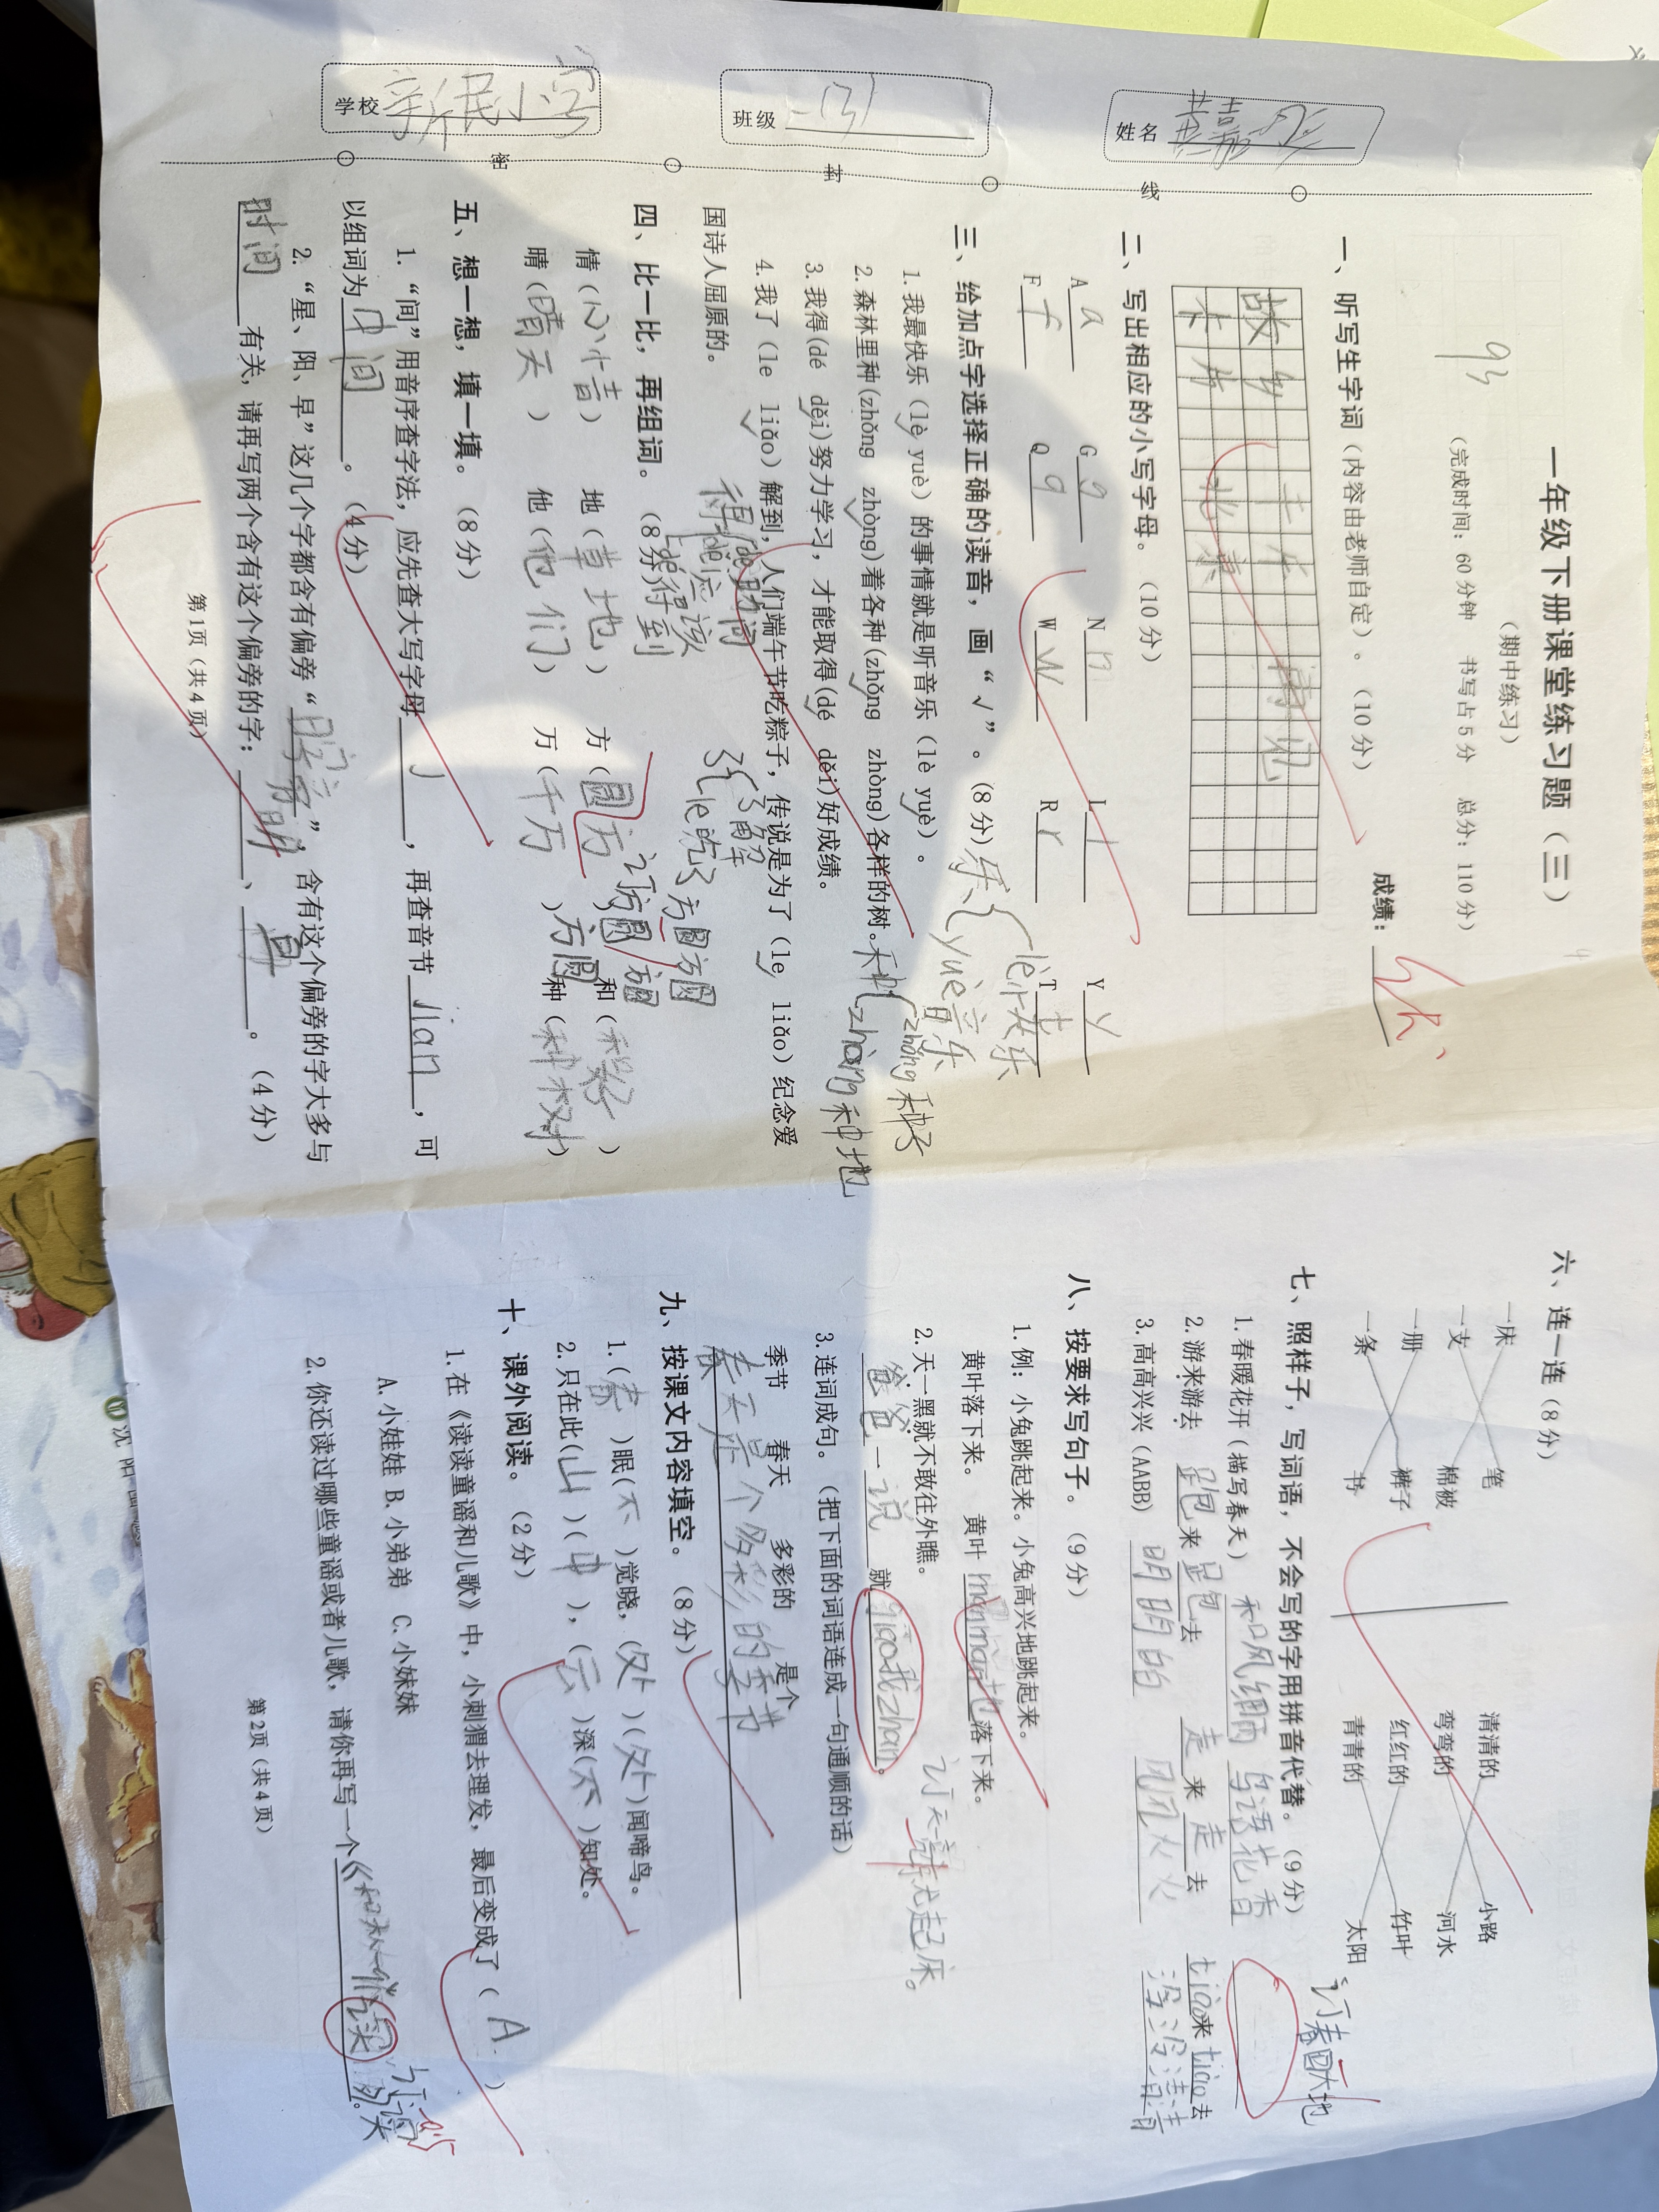 学校 新民小学
班级
姓名
密 封 线
93
一年级下册课堂练习题（三）
（期中练习）
（完成时间：60分钟 书写占5分 总分：110分）
成绩：
一、听写生字词（内容由老师自定）。（10分）
故乡
北京
情况
二、写出相应的小写字母。（10分）
A a G g N n L l Y y
F f Q q W w R r T t
三、给加点字选择正确的读音，画“√”。（8分）
乐 lè快乐 yuè音乐
1.我最快乐（lè yuè）的事情就是听音乐（lè yuè）。
2.森林里种(zhǒng zhòng)着各种(zhǒng zhòng)各样的树。
种 zhǒng种子 zhòng种地
3.我得(dé děi)努力学习，才能取得(dé děi)好成绩。
4.我了（le liǎo）解到，人们端午节吃粽子，传说是为了（le liǎo）纪念爱
国诗人屈原的。
四、比一比，再组词。（8分）
情（心情） 地（草地） 方（圆方） 和（和好）
晴（晴天） 他（他们） 万（千万） 种（种树）
订方圆
五、想一想，填一填。（8分）
1.“间”用音序查字法，应先查大写字母 J ，再查音节 jian ，可
以组词为 中间 。（4分）
2.“星、阳、早”这几个字都含有偏旁“ 日字旁 ”，含有这个偏旁的字大多与
时间 有关，请再写两个含有这个偏旁的字： 明 、 早 。（4分）
第1页（共4页）
六、连一连（8分）
一床 笔 清清的 小路
一支 棉被 弯弯的 河水
一册 裤子 红红的 竹叶
一条 书 青青的 太阳
七、照样子，写词语，不会写的字用拼音代替。（9分）
订春回大地
1.春暖花开（描写春天） 和风细雨 鸟语花香
2.游来游去 跑来跑去 走来走去 tiào来tiào去
3.高高兴兴（AABB） 明明白白 风风火火
八、按要求写句子。（9分）
1.例：小兔跳起来。小兔高兴地跳起来。
黄叶落下来。 黄叶 mànmàn地 落下来。
2.天一黑就不敢往外瞧。
爸爸 一 说 就
3.连词成句。（把下面的词语连成一句通顺的话）
季节 春天 多彩的 是个
春天是个多彩的季节
九、按课文内容填空。（8分）
1.（春）眠（不）觉晓，（处）（处）闻啼鸟。
2.只在此（山）（中），（云）深（不）知处。
十、课外阅读。（2分）
1.在《读读童谣和儿歌》中，小刺猬去理发，最后变成了（ A ）
A.小娃娃 B.小弟弟 C.小妹妹
2.你还读过哪些童谣或者儿歌，请你再写一个
第2页（共4页）